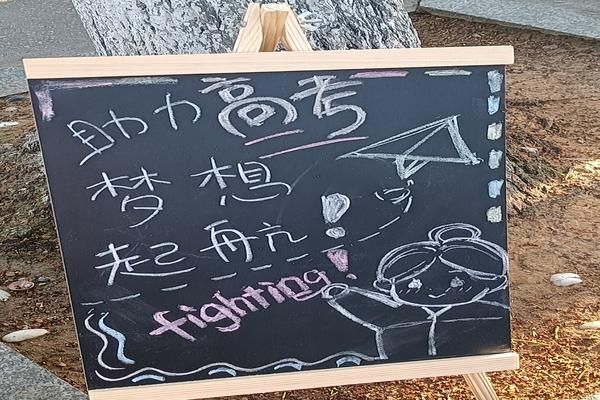 助力高考
梦想
起航!
fighting!